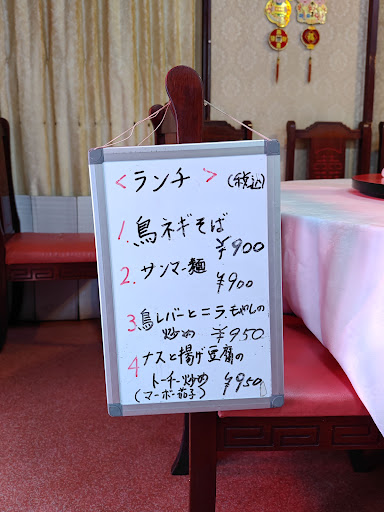 ＜ランチ＞ (税込)
1. 鳥ネギそば
￥900
2. サンマー麺
￥900
3. 鳥レバーとニラ、もやしの
炒め ￥950
4 ナスと揚げ豆腐の
トーチー炒め ￥950
(マーボー茄子)